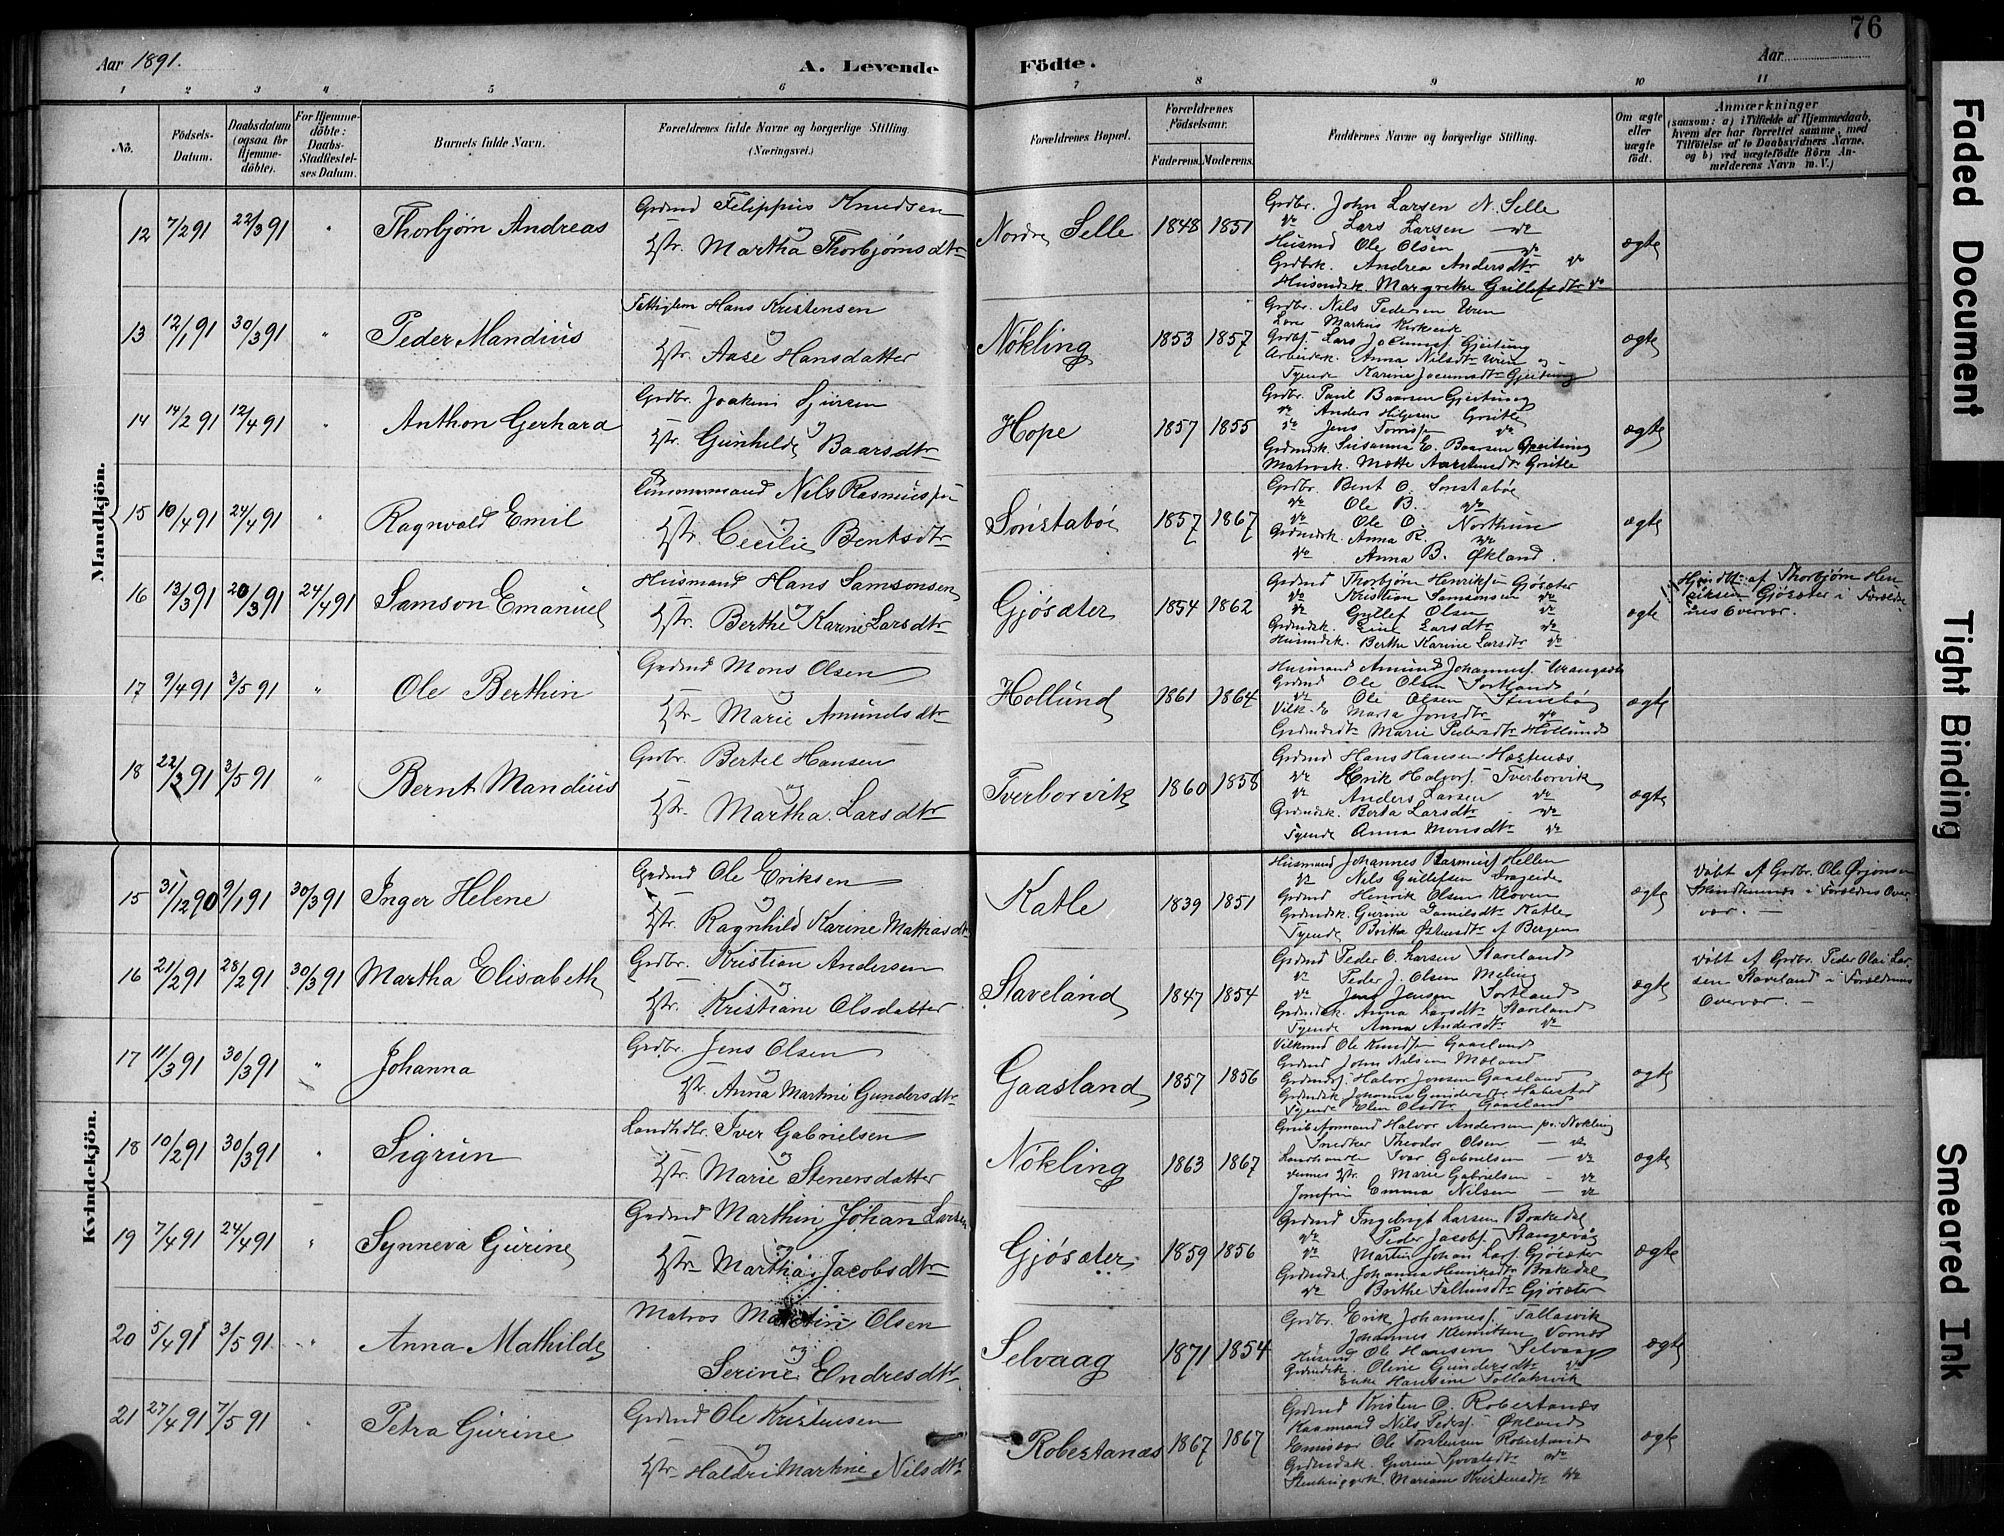 76
Aar 1891.
A. Levende Födte.
Aar
1 2 3 4 5 6 7 8 9 10 11
No.
Födsels-Datum.
Daabsdatum (ogsaa for Hjemmedöbte).
For Hjemmedöbte: Daabs-Stadfæstelses Datum.
Barnets fulde Navn.
Forældrenes fulde Navne og borgerlige Stilling. (Næringsvei.)
Forældrenes Bopæl.
Forældrenes Födselsaar.
Faderens. Moderens.
Faddernes Navne og borgerlige Stilling.
Om ægte eller uægte födt.
Anmærkninger
(saasom: a) i Tilfælde af Hjemmedaab, hvem der har forrettet samme, med Tilföielse af to Daabsvidners Navne, og b) ved uægtefödte Börn Anmelderens Navn m. V.)
Mandkjön.
12 7/2 91 22/3 91 " Thorbjørn Andreas
Grdmd Filippus Knudsen
og
Hstr. Martha Thorbjørnsdtr
Nordre Selle 1848 1851
Grdbr. John Larsen N. Selle
do Lars Larsen do
Husmd Ole Olsen do
Grdbrk. Andrea Andersdtr do
Husmdsk. Margrethe Gullefsdtr do
ægte
13 12/1 91 30/3 91 " Peder Mandius
Fattiglem Hans Kristensen
og
Hstr. Aase Hansdatter
Nökling 1853 1857
Grdbr. Nils Pedersen
Markus Kirkevik
Lars Gjeitung
Anna Nilsdtr
Tyende Karine Gjeitung
ægte
14 14/2 91 12/4 91 " Anthon Gerhard
Grdbr. Joakim Sjursen
og
Hstr. Gunhilde Baarsdtr
Hope 1857 1855
Grdbr. Paul Baarsen Gjeitung
do Anders
do Jens do
Grdmdsk. Susanna E. Baarsen Gjeitung
Matrosk. Mette
ægte
15 10/4 91 24/4 91 " Ragnvald Emil
Tømmermand Nils Rasmussen
og
Hstr. Cecilie Bentsdtr
Sønstabø 1857 1867
Grdbr. Bent O. Sønstabø
do Ole B. do
do Ole O. Northun
Grdmdsk. Anna R. do
do Anna B. Økland
ægte
16 13/3 91 20/3 91 24/4 91 Samson Emanuel
Husmand Hans Samsonsen
og
Hstr. Berthe Karine Larsdtr
Gjøsæter 1854 1862
Grdmd Thorbjørn Henriksen Gjøsæter
do Kristian Samsonsen do
do Gullef Olsen do
Grdmdsk. Larsdtr do
Husmdsk. Berthe Karine Larsdtr do
ægte
af Thorbjørn Henriksen Gjøsæter i Forældrenes Overvær.
17 9/4 91 3/5 91 " Ole Berthin
Grdmd Mons Olsen
og
Hstr. Marie Amundsdtr
Hollund 1861 1864
Husmand Amund Johanness.
Grdmd Ole Olsen Sortland
do Ole Olsen Stensbø
Marta Jonsdtr do
Marie Pedersdtr Hollund
ægte
18 22/2 91 3/5 91 " Bernt Mandius
Grdbr. Bertel Hansen
og
Hstr. Martha Larsdtr
Tverborvik 1860 1858
Grdmd Hans Hansen
do Erik Halvors. Tverborvik
do Anders Larsen do
Grdmdsk. Berta Larsdtr do
Tyende Anna Monsdtr do
ægte
Kvindekjön.
15 31/12 90 9/1 91 30/3 91 Inger Helene
Grdmd Ole Eriksen
og
Hstr. Ragnhild Karine Mathiasdtr
Katle 1839 1851
Husmand Johannes Rasmuss. Hellen
do Nils Gullefsen
Grdmd Henrik Olsen Kloven
Grdmdsk. Gurine Danielsdtr Katle
Tyende Britha af Bergen
ægte
Døbt af Grdbr. Ole Ørjansen i Forældres Overvær.
16 21/2 91 28/2 91 30/3 91 Martha Elisabeth
Grdbr. Kristian Andersen
og
Hstr. Kristiane Olsdatter
Staveland 1847 1854
Grdmd Peder O. Larsen Staveland
do Peder J. Olsen Meling
do Jens Jensen Sortland
Grdmdsk. Anna Larsdtr Staveland
Tyende Anna Andersdtr do
ægte
Døbt af Grdbr. Peder Olai Larsen Staveland i Forældrenes Overvær.
17 11/3 91 30/3 91 " Johanna
Grdbr. Jens Olsen
og
Hstr. Anna Martine Gundersdtr
Gaasland 1857 1856
Ole Knudsen Gaasland
Grdmd John Nilsen Mæland
Halvor Jonsen Gaasland
Grdmdsk. Johanna Gundersdtr Habestad
Tyende Elen Olsdtr Gaasland
ægte
18 10/2 91 30/3 91 " Sigrun
Landhdlr. Iver Gabrielsen
og
Hstr. Marie Stenersdatter
Nökling 1863 1867
Halvor Andersen pr. Nökling
Snedker Theodor Olsen do
Landhandler Ivar Gabrielsen do
Hstr. Marie Gabrielsen do
Jomfru Emma Nilsen do
ægte
19 7/4 91 24/4 91 " Synneva Gurine
Grdmd Marthin Johan Larsen
og
Hstr. Martha Jacobsdtr
Gjøsæter 1859 1856
Grdmd Ingebrigt Larsen Brakedal
do Peder Jacobs. Stangervåg
do Martin Johan Lars. Gjøsæter
Johanna Henriksdtr Brakedal
do Berthe Gjøsæter
ægte
20 5/4 91 3/5 91 " Anna Mathilde
Matros Martin Olsen
og
Serine Endresdtr
Selvaag 1871 1854
Grdbr. Erik Johannes. Tollaksvik
Johannes Klemetsen
Husmd Ole Hansen Selvaag
Grdmdsk. Oline Gundersdtr do
Enke Hansine Tollaksvik
ægte
21 27/4 91 7/5 91 " Petra Gurine
Grdmd Ole Kristensen
og
Hstr. Haldri Martine Nilsdtr
Robertanæs 1867 1867
Grdmd Kristen O. Robertanæs
Nils Peders. Økland
Emissær Ole Torstensen Robertanæs
Grdmdsk. Gurine do
Mariane Kristensdtr do
ægte
Faded Document
Tight Binding
Smeared Ink